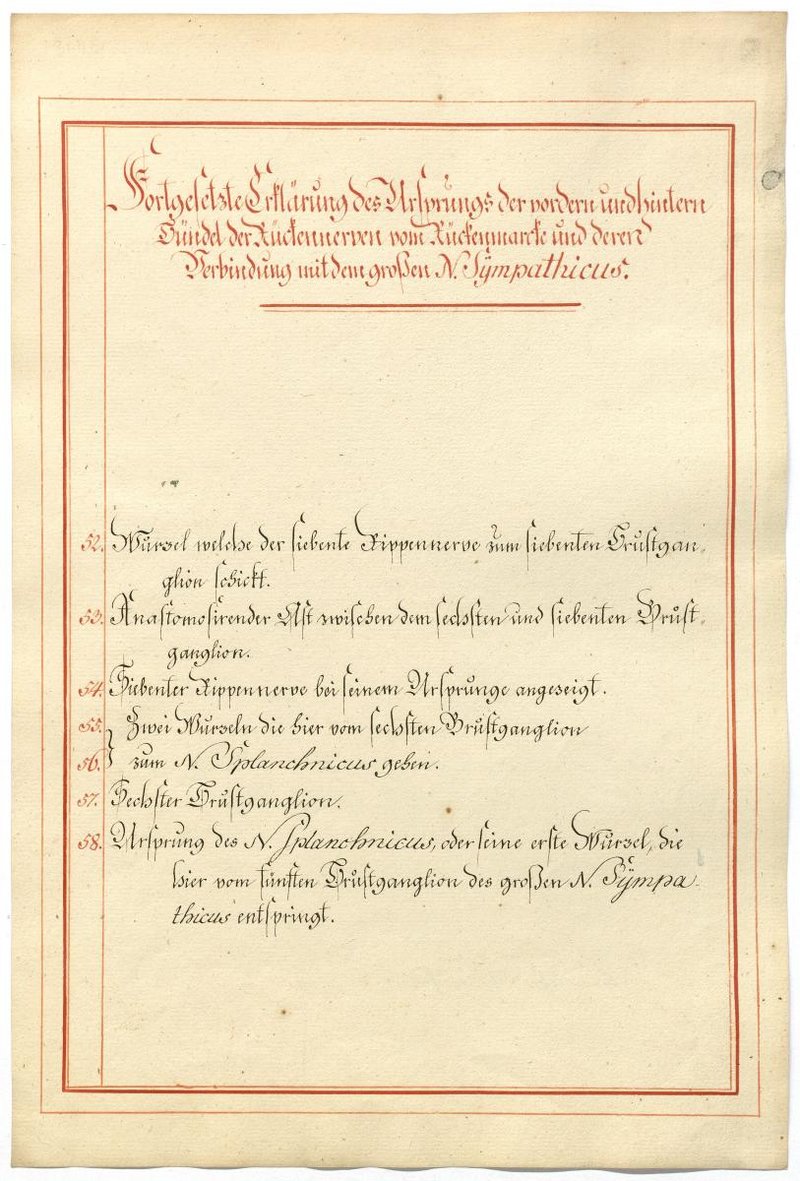 Fortgesetzte Erklärung des Ursprungs der vordern und hintern
Bündel der Rückennerven vom Rückenmarcke und deren
Verbindung mit dem großen N. Sÿmpathicus.
52. Würzel welche der siebente Rippennerve zum siebenten Brustgan-
glion schickt.
53. Anastomosirender Ast zwischen dem sechsten und siebenten Brust-
ganglion.
54. Siebenter Rippennerve bei seinem Ursprunge angezeigt.
55. Zwei Wurzeln die hier vom sechsten Brustganglion
56. zum N. Splanchnicus gehen.
57. Sechster Brustganglion.
58. Ursprung des N. Splanchnicus, oder seine erste Würzel, die
hier vom fünften Brustganglion des großen N. Sÿmpa-
thicus entspringt.